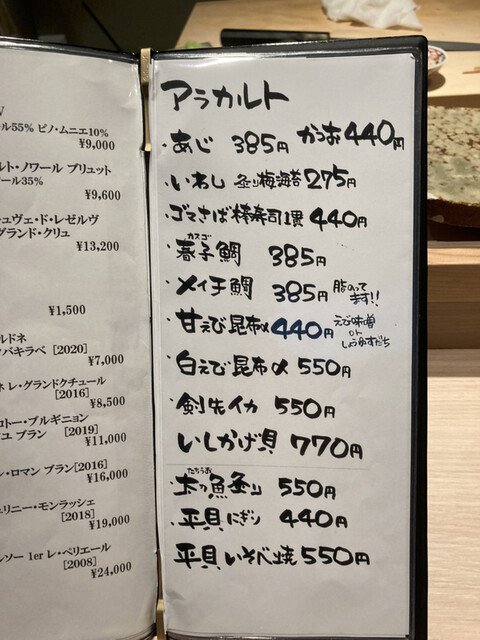 ール55% ピノ・ムニエ10%
¥9,000
ルト・ノワール ブリュット
ール35%
¥9,600
チュヴェ・ド・レゼルヴ
グランド・クリュ
¥13,200
¥1,500
ルドネ
バキラベ [2020]
¥7,000
ネ レ・グランドクチュール
[2016]
¥8,500
コトー・ブルギニョン
ユ ブラン [2019]
¥11,000
ン・ロマン ブラン[2016]
¥16,000
ュリニー・モンラッシェ
[2018]
¥19,000
ルソー 1er レ・ペリエール
[2008]
¥24,000
アラカルト
・あじ 385円 かつお440円
・いわし 炙り梅海苔 275円
・ゴマさば棒寿司1貫 440円
カスゴ
・春子鯛 385円
・メイチ鯛 385円 脂のってます!!
・甘えび昆布〆 440円 えび味噌 or しょうゆすだち
白えび昆布〆 550円
・剣先イカ 550円
いしかげ貝 770円
たちうお
・太刀魚炙り 550円
・平貝にぎり 440円
平貝いそべ焼 550円